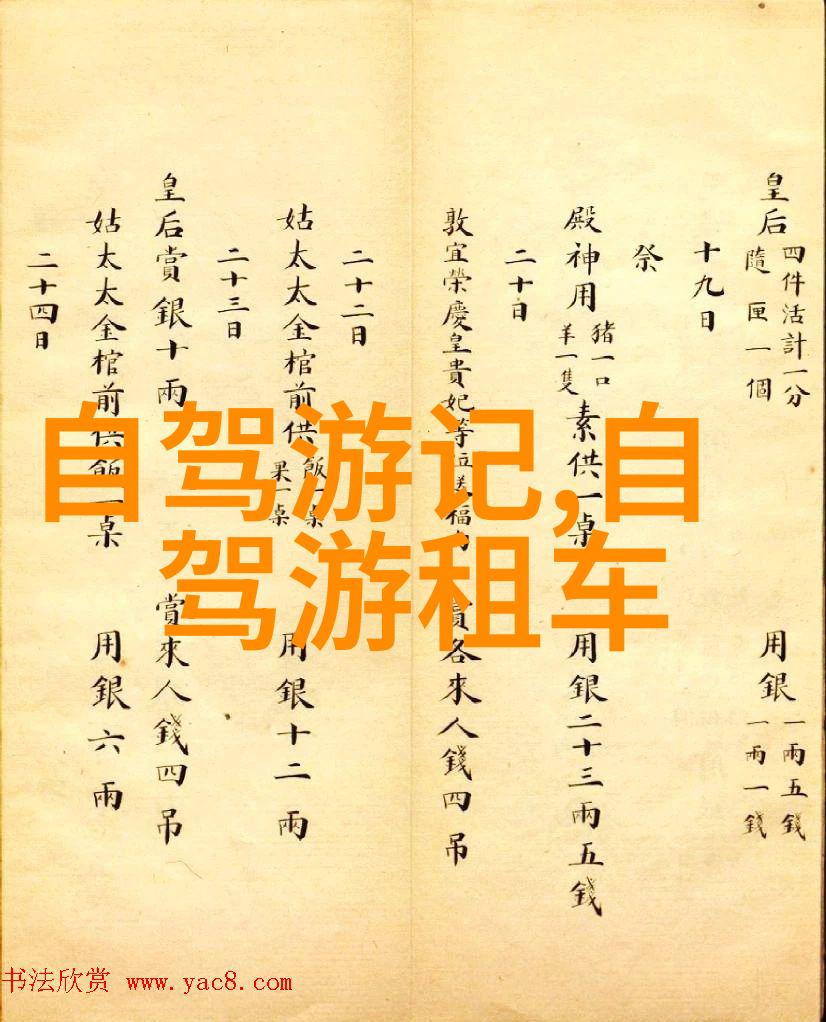 皇后 四件活計一分 隨匣一個 用銀 一兩五錢 一兩一錢
十九日
祭
殿神用 豬一口 羊一隻 素供一桌 用銀二十三兩五錢
二十日
敦宜榮慶皇貴妃等位送福肉 賞各來人錢四吊
二十二日
姑太太金棺前供 飯一桌 果一桌 用銀十二兩
二十三日
皇后賞銀十兩 賞來人錢四吊
姑太太金棺前供飯一桌 用銀六兩
二十四日
自驾游记,自
驾游租车
书法欣赏 www.yac8.com